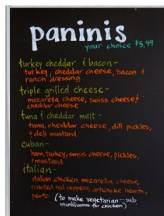 paninis
your choice $5.99
turkey cheddar & bacon -
turkey, cheddar cheese, bacon &
ranch dressing
triple grilled cheese -
mozzarella cheese, swiss cheese,
cheddar cheese
tuna & cheddar melt -
tuna, cheddar cheese, dill pickles,
& deli mustard
cuban -
ham, turkey, swiss cheese, pickles,
& mustard
italian -
italian chicken mozzarella cheese,
roasted red peppers, artichoke hearts,
pesto
(to make vegetarian - sub
mushrooms for chicken)